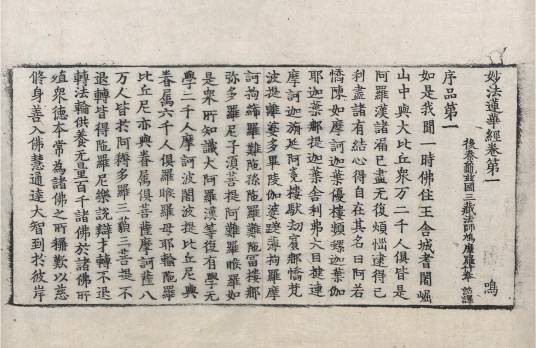 妙法蓮華經卷第一 鳴
後秦龜茲國三藏法師鳩摩羅什奉 詔譯
序品第一
如是我聞一時佛住王舍城耆闍崛
山中與大比丘衆万二千人俱皆是
阿羅漢諸漏已盡无復煩惱逮得己
利盡諸有結心得自在其名曰阿若
憍陳如摩訶迦葉優樓頻螺迦葉伽
耶迦葉那提迦葉舍利弗大目揵連
摩訶迦旃延阿㝹樓馱劫賓那憍梵
波提離婆多畢陵伽婆蹉薄拘羅摩
訶拘絺羅難陁孫陁羅難陁富樓那
弥多羅尼子須菩提阿難羅睺羅如
是衆所知識大阿羅漢等復有學无
學二千人摩訶波闍波提比丘尼與
眷属六千人俱羅睺羅母耶輸陁羅
比丘尼亦與眷属俱菩薩摩訶薩八
万人皆於阿耨多羅三藐三菩提不
退轉皆得陁羅尼樂說辯才轉不退
轉法輪供養无量百千諸佛於諸佛所
殖衆德本常為諸佛之所稱歎以慈
脩身善入佛慧通達大智到於彼岸